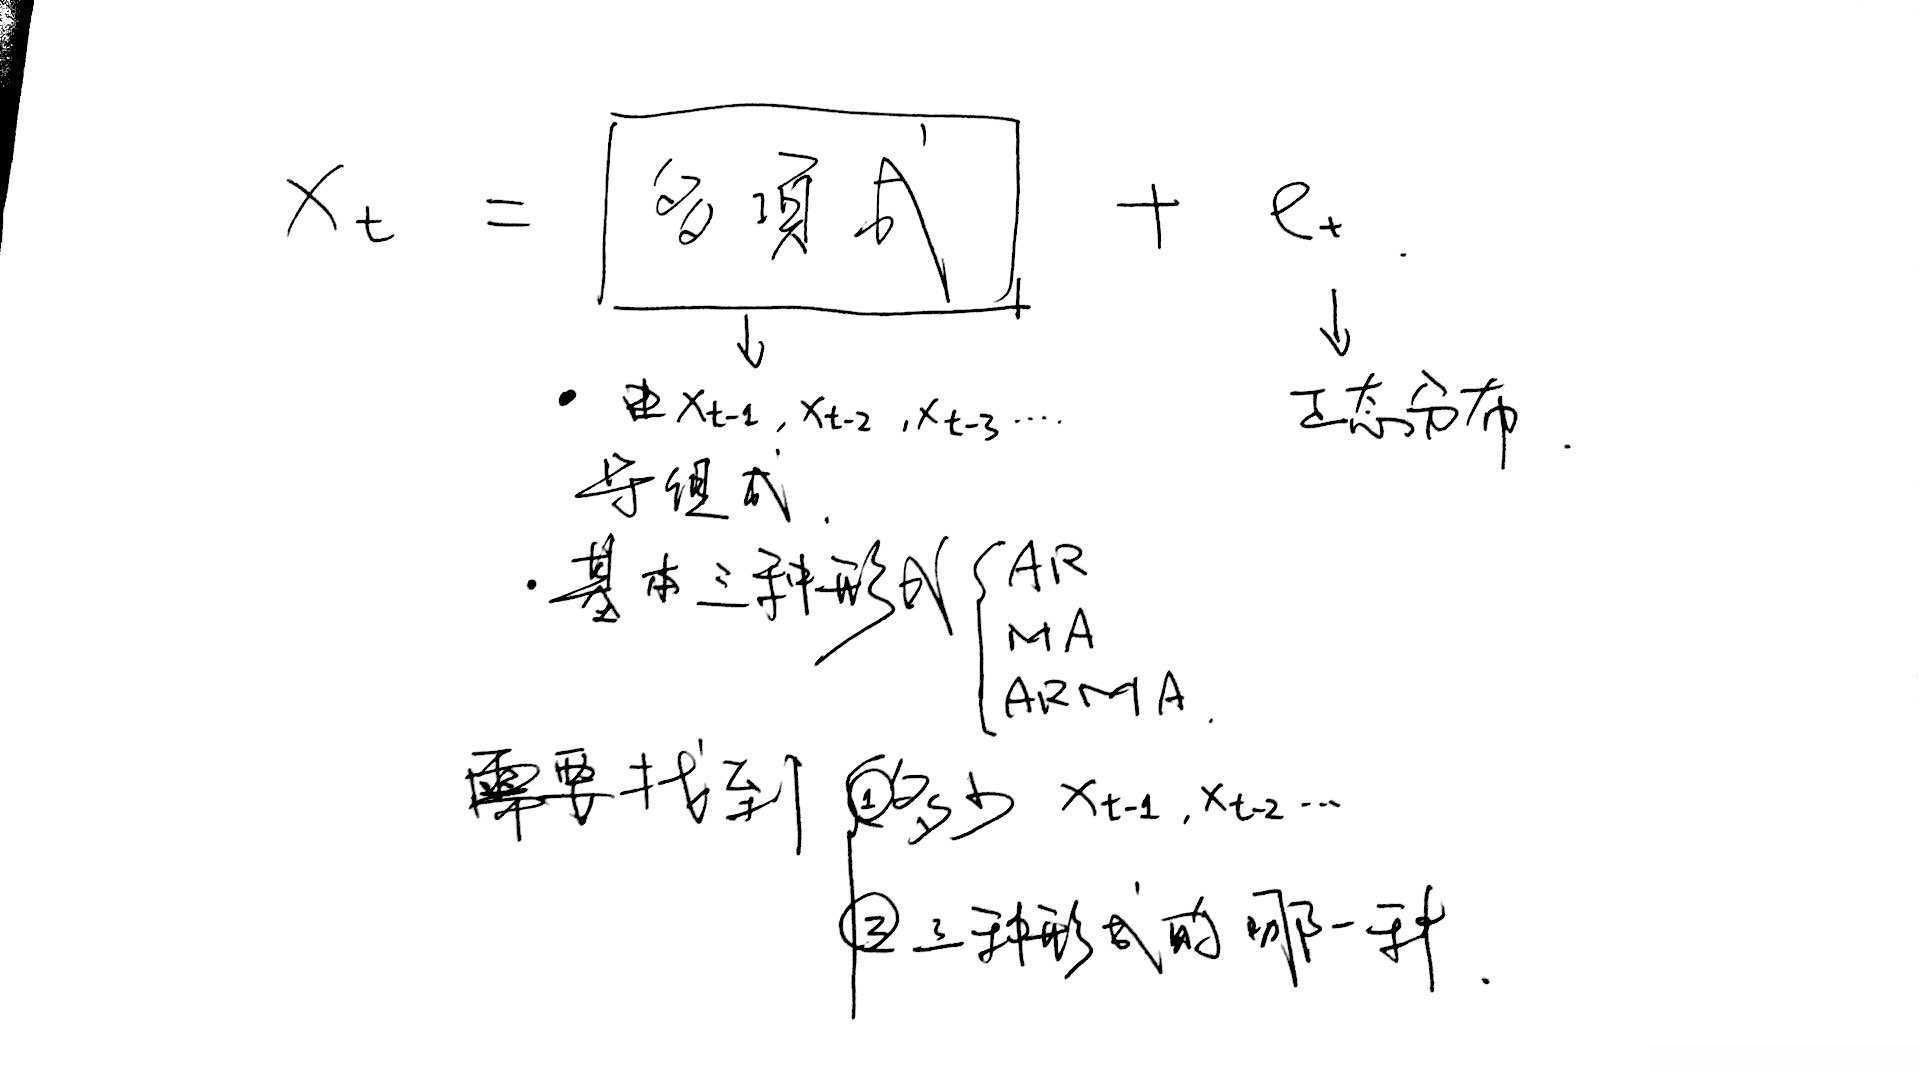 Xt = 多项式 + et.
正态分布.
• 由 Xt-1, Xt-2, Xt-3 ····
等组成.
• 基本三种形式 { AR
MA
ARMA.
需要找到 ① 多少 Xt-1, Xt-2 ···
② 三种形式的哪一种.